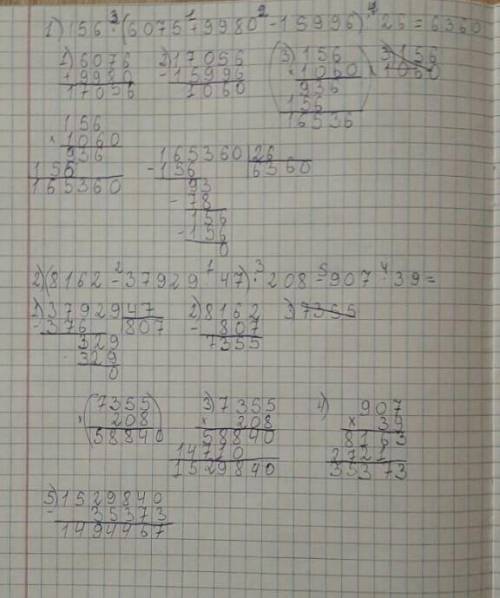 1) 156 · (6075 + 9980 - 15996) : 26 = 6360
3 1 2 4
1) 6076 2) 17056 (3) 156 3) 156
+ 9980 - 15996 × 1060 × 1060
17056 1060 936
156
16536
156
× 1060
936
156
165360
165360 | 26
- 156 6360
93
- 78
156
- 156
0
2) (8162 - 37929 : 47) · 208 - 907 · 39 =
2 1 3 5 4
1) 37929 | 47 2) 8162 3) 7355
- 376 807 - 807
329 7355
329
0
(7355 3) 7355 4) 907
× 208) × 208 × 39
58840 58840 8163
14710 2721
1529840 35373
5) 1529840
- 35373
1494467